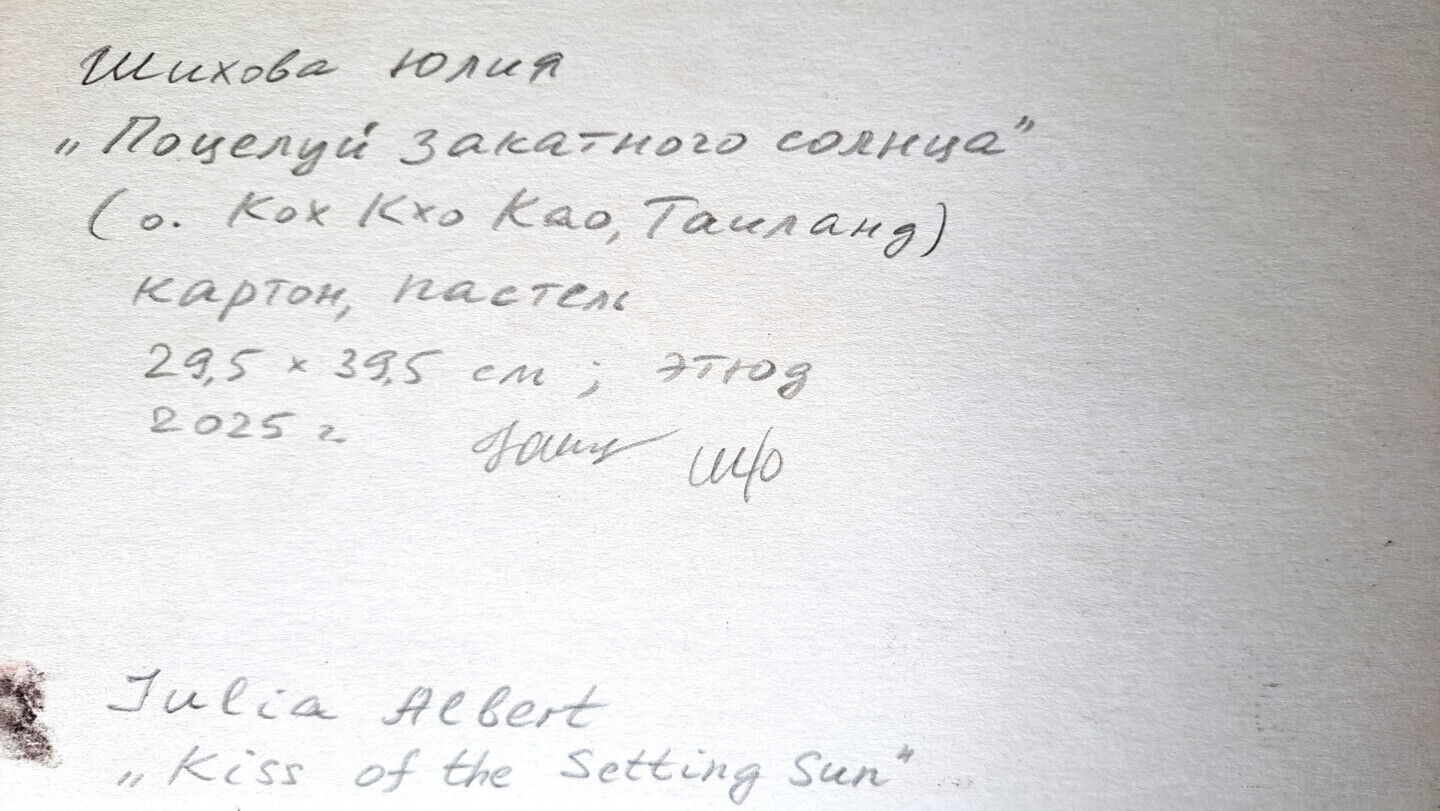 Шихова Юлия
„Поцелуй закатного солнца”
(о. Кох Кхо Као, Таиланд)
картон, пастель
29,5 × 39,5 см ; этюд
2025 г.
Julia Albert
„Kiss of the Setting Sun"